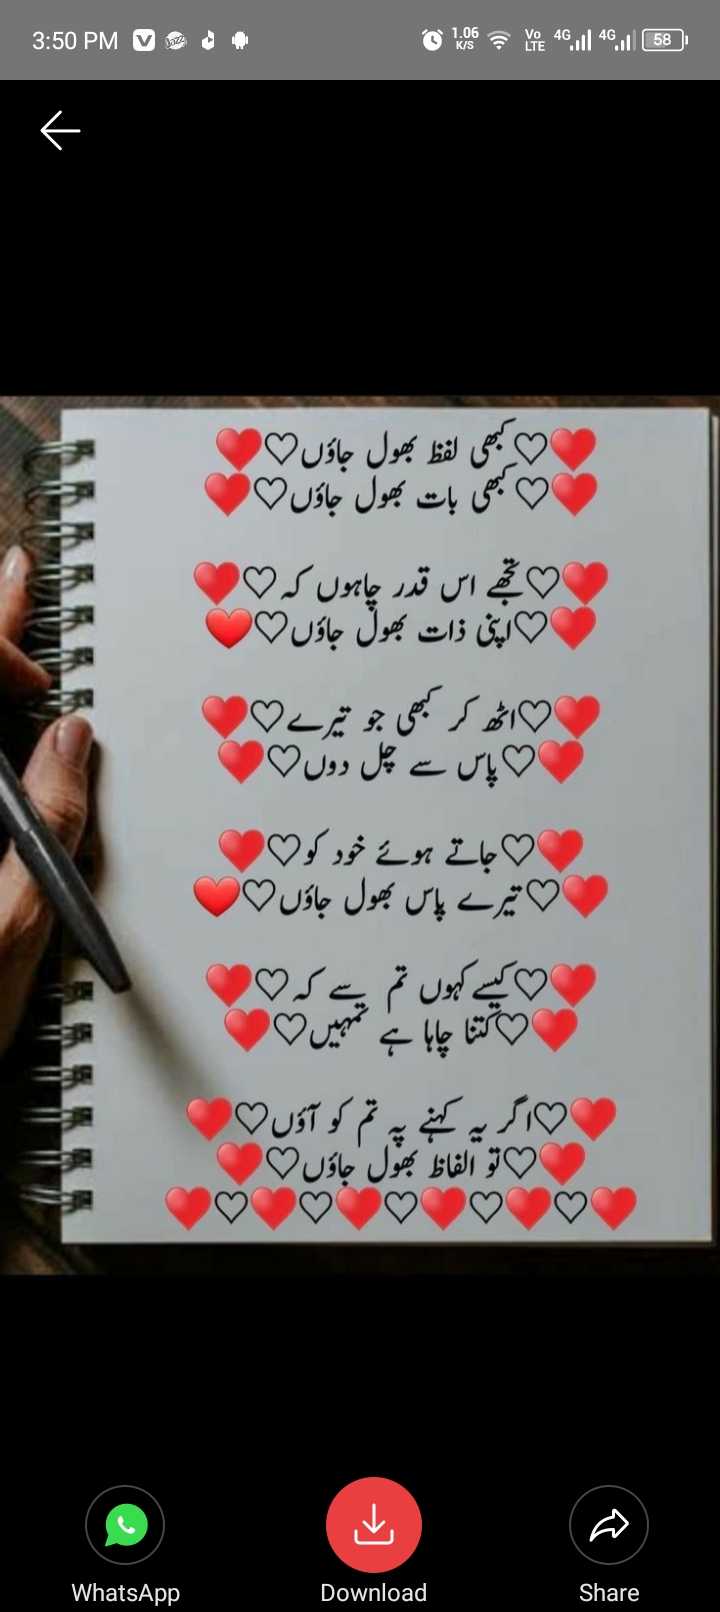 3:50 PM
1.06 K/S
Vo LTE 4G 4G 58
♥️♡کبھی لفظ بھول جاؤں♡♥️
♥️♡کبھی بات بھول جاؤں♡♥️
♥️♡تجھے اس قدر چاہوں کہ♡♥️
♥️♡اپنی ذات بھول جاؤں♡♥️
♥️♡اٹھ کر کبھی جو تیرے♡♥️
♥️♡پاس سے چل دوں♡♥️
♥️♡جاتے ہوئے خود کو♡♥️
♥️♡تیرے پاس بھول جاؤں♡♥️
♥️♡کیسے کہوں تم سے کہ♡♥️
♥️♡کتنا چاہا ہے تمہیں♡♥️
♥️♡اگر یہ کہنے پہ تم کو آؤں♡♥️
♥️♡تو الفاظ بھول جاؤں♡♥️
♥️♡♥️♡♥️♡♥️♡♥️♡♥️
WhatsApp
Download
Share